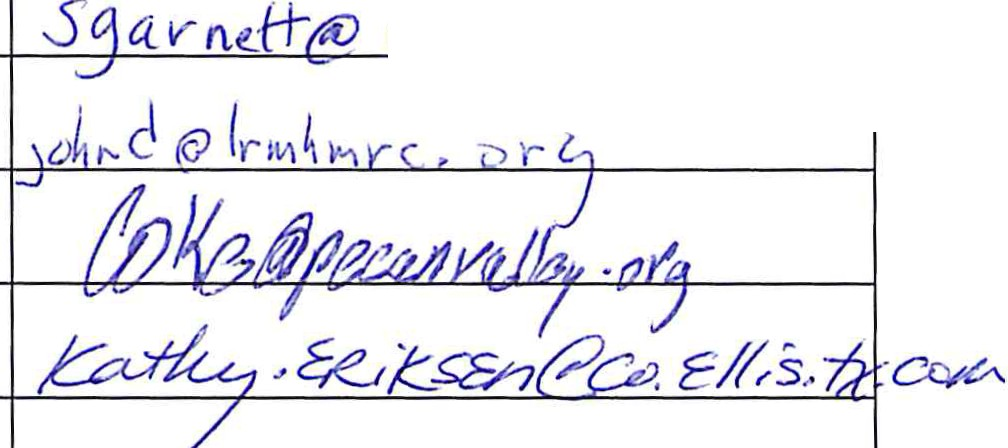 sgarnett@
johnd@lrmhmrc.org
Coke@pecanvalley.org
Kathy.ERiKSEn@co.Ellis.tx.com